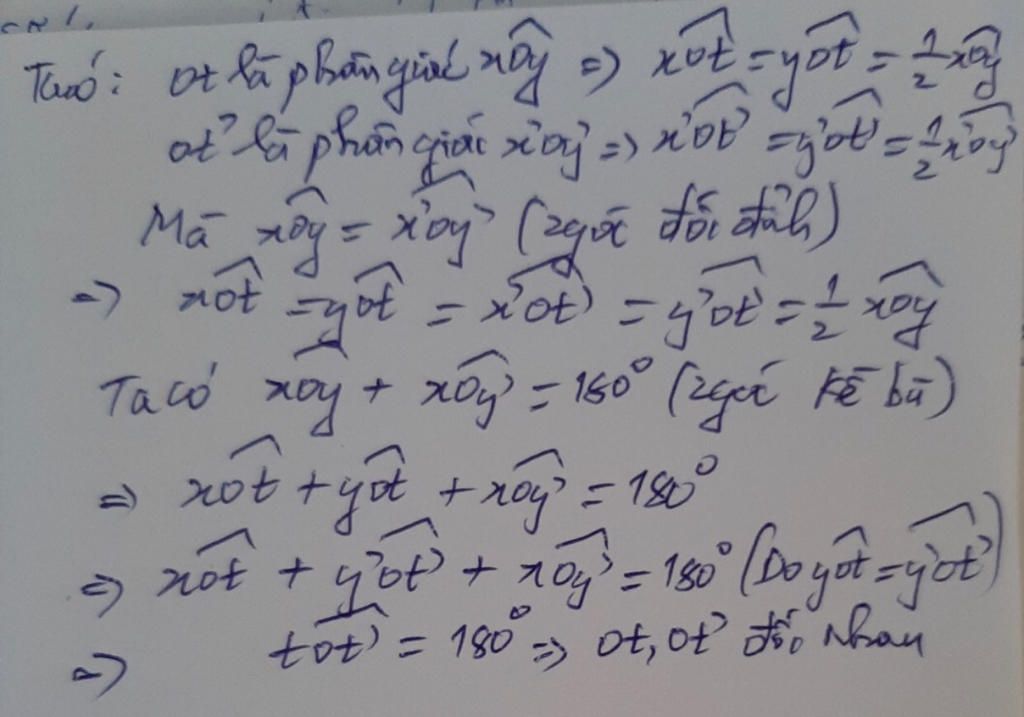 Ta có: Ot là phân giác xÔy => xÔt = yÔt = 1/2 xÔy
Ot' là phân giác x'Oy' => x'Ôt' = y'Ôt' = 1/2 x'Ôy'
Mà xÔy = x'Ôy' (2 góc đối đỉnh)
=> xÔt = yÔt = x'Ôt' = y'Ôt' = 1/2 xÔy
Ta có xÔy + xÔy' = 180° (2 góc kề bù)
=> xÔt + yÔt + xÔy' = 180°
=> xÔt + y'Ôt' + xÔy' = 180° (Do yÔt = y'Ôt')
=> tÔt' = 180° => Ot, Ot' đối nhau